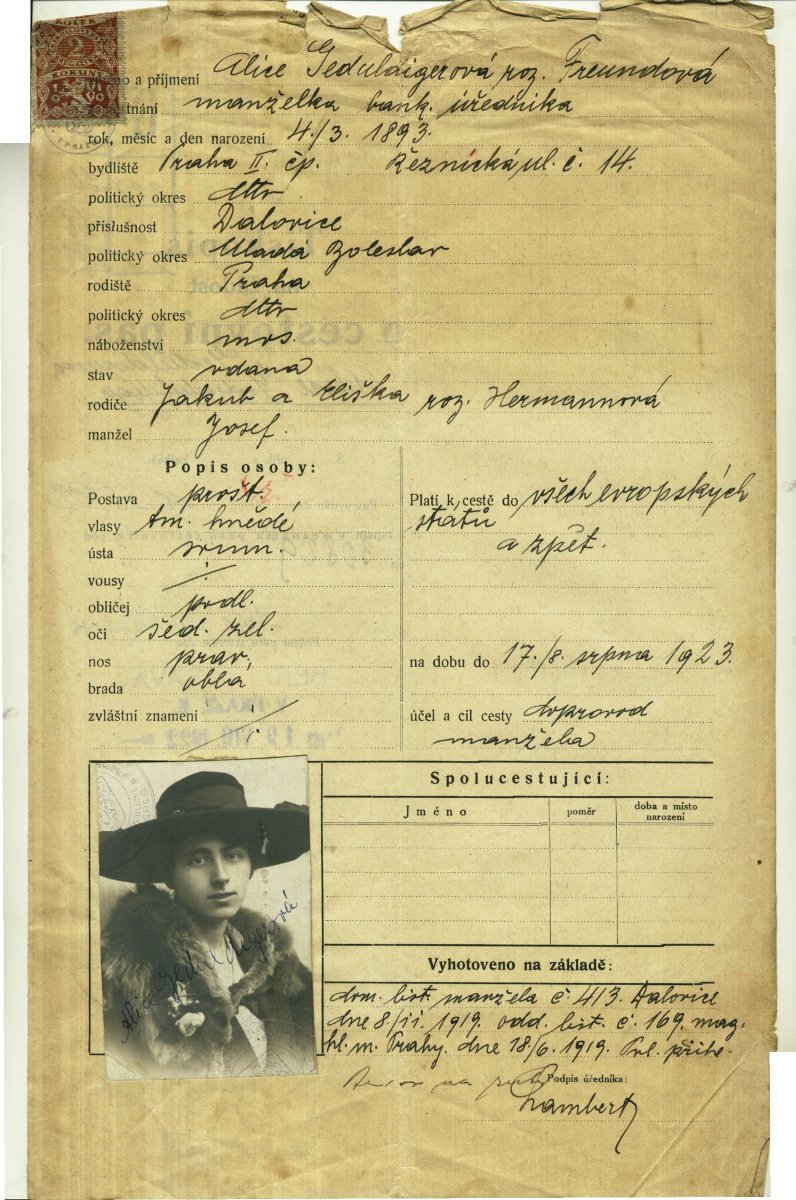 KOLEK
2
KORUNY
1919
V PRAZE
jméno a příjmení Alice Geduldigerová roz. Freundová
zaměstnání manželka bank. úředníka
rok, měsíc a den narození 4./3. 1893.
bydliště Praha II. čp. Řeznická ul. č. 14.
politický okres dtto
příslušnost Dalovice
politický okres Mladá Boleslav
rodiště Praha
politický okres dtto
náboženství mos.
stav vdaná
rodiče Jakub a Eliška roz. Hermannová
manžel Josef.
Popis osoby:
Postava prost.
vlasy tm. hnědé
ústa
vousy
obličej podl.
oči šed. zel.
nos prav.
brada oblá
zvláštní znamení
Platí k cestě do všech evropských
států
a zpět.
na dobu do 17./8. srpna 1923.
účel a cíl cesty doprovod
manžela
Spolucestující:
Jméno poměr doba a místo
narození
Alice Geduldigerová
Vyhotoveno na základě:
dom. list. manžela č. 413. Dalovice
dne 8/ii. 1919. odd. list. č. 169. mag.
hl. m. Prahy. dne 18./6. 1919. Pol. přihl.
Podpis úředníka:
Lambert